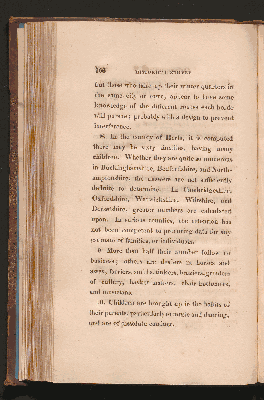 166 HISTORICAL SURVEY
that those who take up their winter quarters in
the same city or town, appear to have some
knowledge of the different routes each horde
will pursue; probably with a design to prevent
interference.
8. In the county of Herts, it is computed
there may be sixty families, having many
children. Whether they are quite so numerous
in Buckinghamshire, Bedfordshire, and North-
amptonshire, the answers are not sufficiently
definite to determine. In Cambridgeshire,
Oxfordshire, Warwickshire, Wiltshire, and
Dorsetshire, greater numbers are calculated
upon. In various counties, the attention has
not been competent to procuring data for any
estimate of families, or individuals.
9. More than half their number follow no
business; others are dealers in horses and
asses, farriers, smiths, tinkers, braziers, grinders
of cutlery, basket makers, chair-bottomers,
and musicians.
10. Children are brought up in the habits of
their parents, particularly to music and dancing,
and are of dissolute conduct.